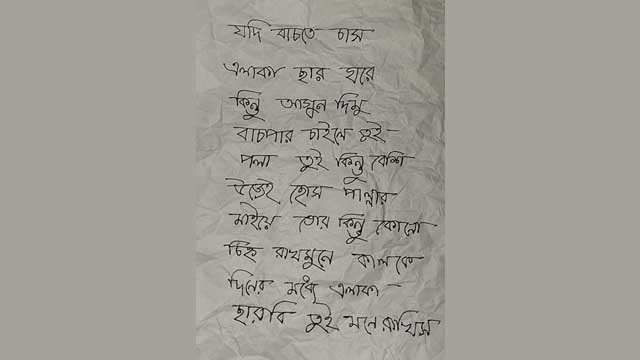 যদি বাচতে চাস
এলাকা ছার ঘরে
কিন্তু আগুন দিমু
বাচপার চাইলে তুই
পলা তুই কিন্তু বেশি
উড়েই হোস পাল্লার
মাইয়ে তোর কিন্তু কোনো
চিহ্ন রাখমুনে কালকে
দিনের মধ্যে এলাকা
ছারবি তুই মনে রাখিস